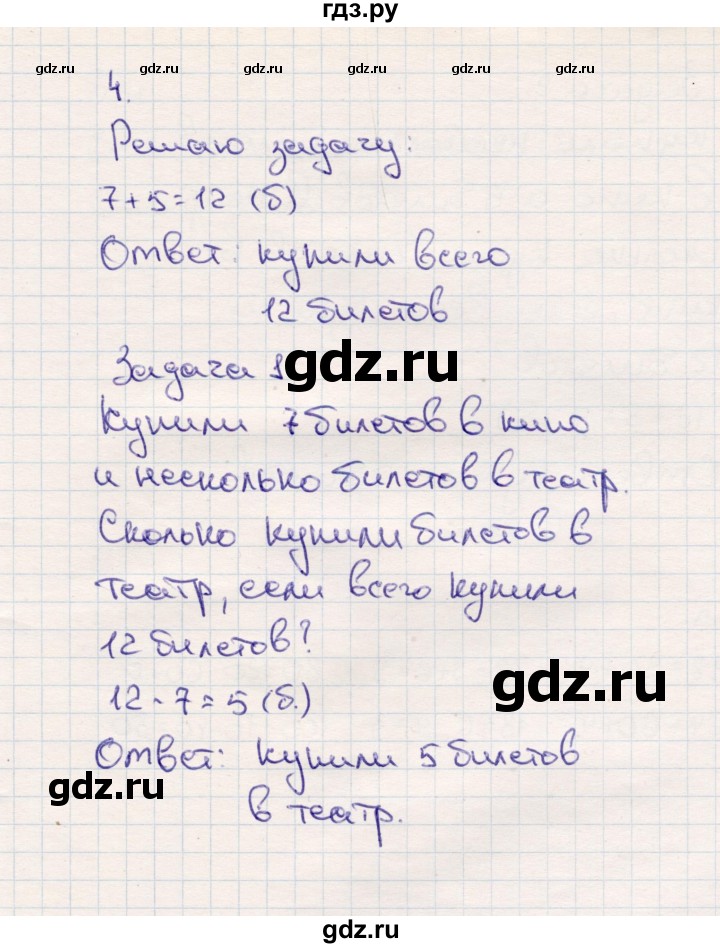 гдз.ру
gdz.ru gdz.ru gdz.ru gdz.ru gdz.ru
4.
Решаю задачу:
7+5=12 (б)
gdz.ru gdz.ru gdz.ru gdz.ru
Ответ: купили всего
12 билетов
Задача 1
gdz.ru
Купили 7 билетов в кино
и несколько билетов в театр.
Сколько купили билетов в
театр, если всего купили
12 билетов?
gdz.ru
12-7=5 (б.)
Ответ: купили 5 билетов
gdz.ru
в театр.
gdz.ru